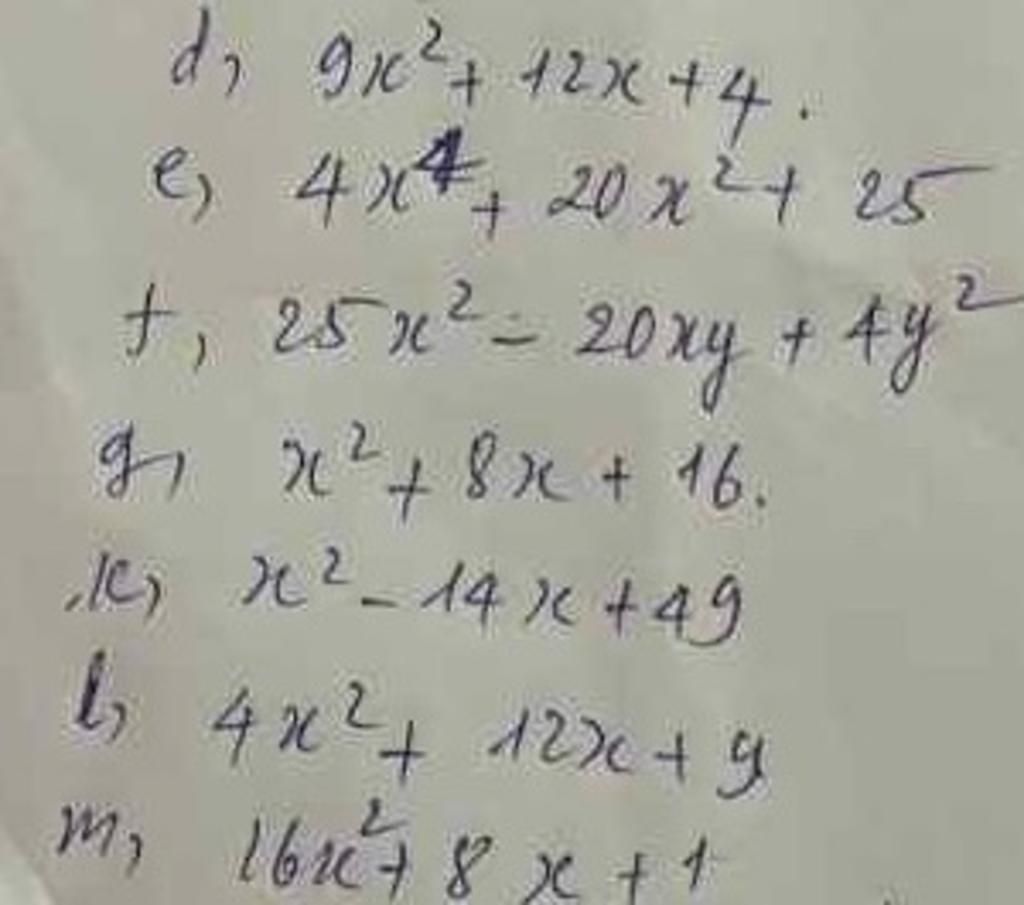 d, 9x² + 12x + 4.
e, 4x⁴ + 20x² + 25
f, 25x² - 20xy + 4y²
g, x² + 8x + 16.
k, x² - 14x + 49
l, 4x² + 12x + 9
m, 16x² + 8x + 1